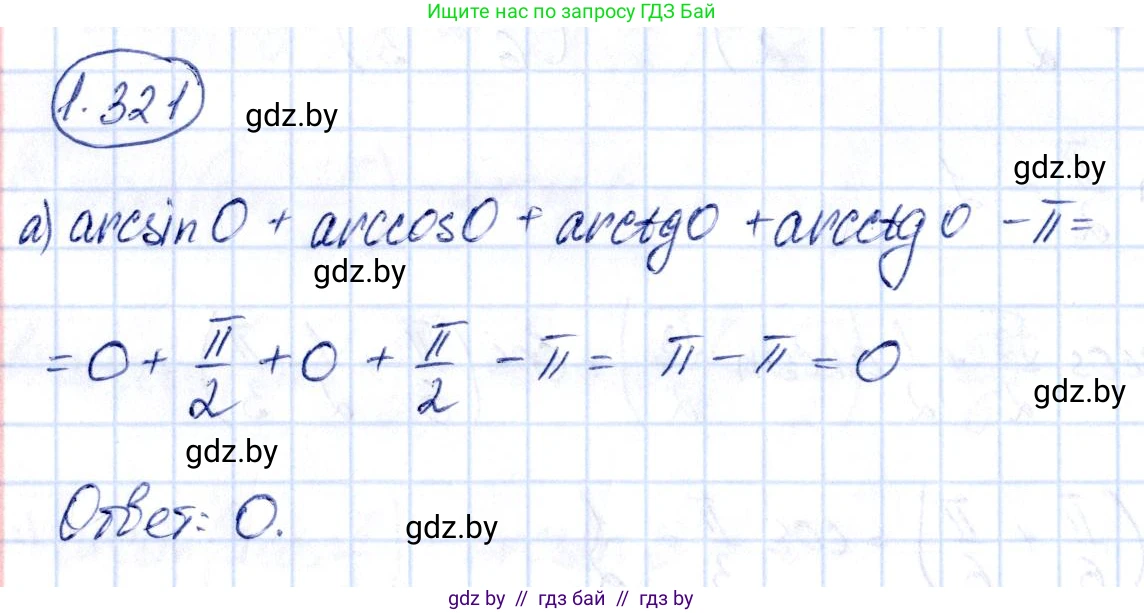 Ищите нас по запросу ГДЗ Бай
1.321
gdz.by
gdz.by
а) arcsin 0 + arccos 0 + arctg 0 + arcctg 0 - π =
gdz.by
= 0 + π/2 + 0 + π/2 - π = π - π = 0
gdz.by
gdz.by
Ответ: 0.
gdz.by
gdz by // гдз бай // гдз by